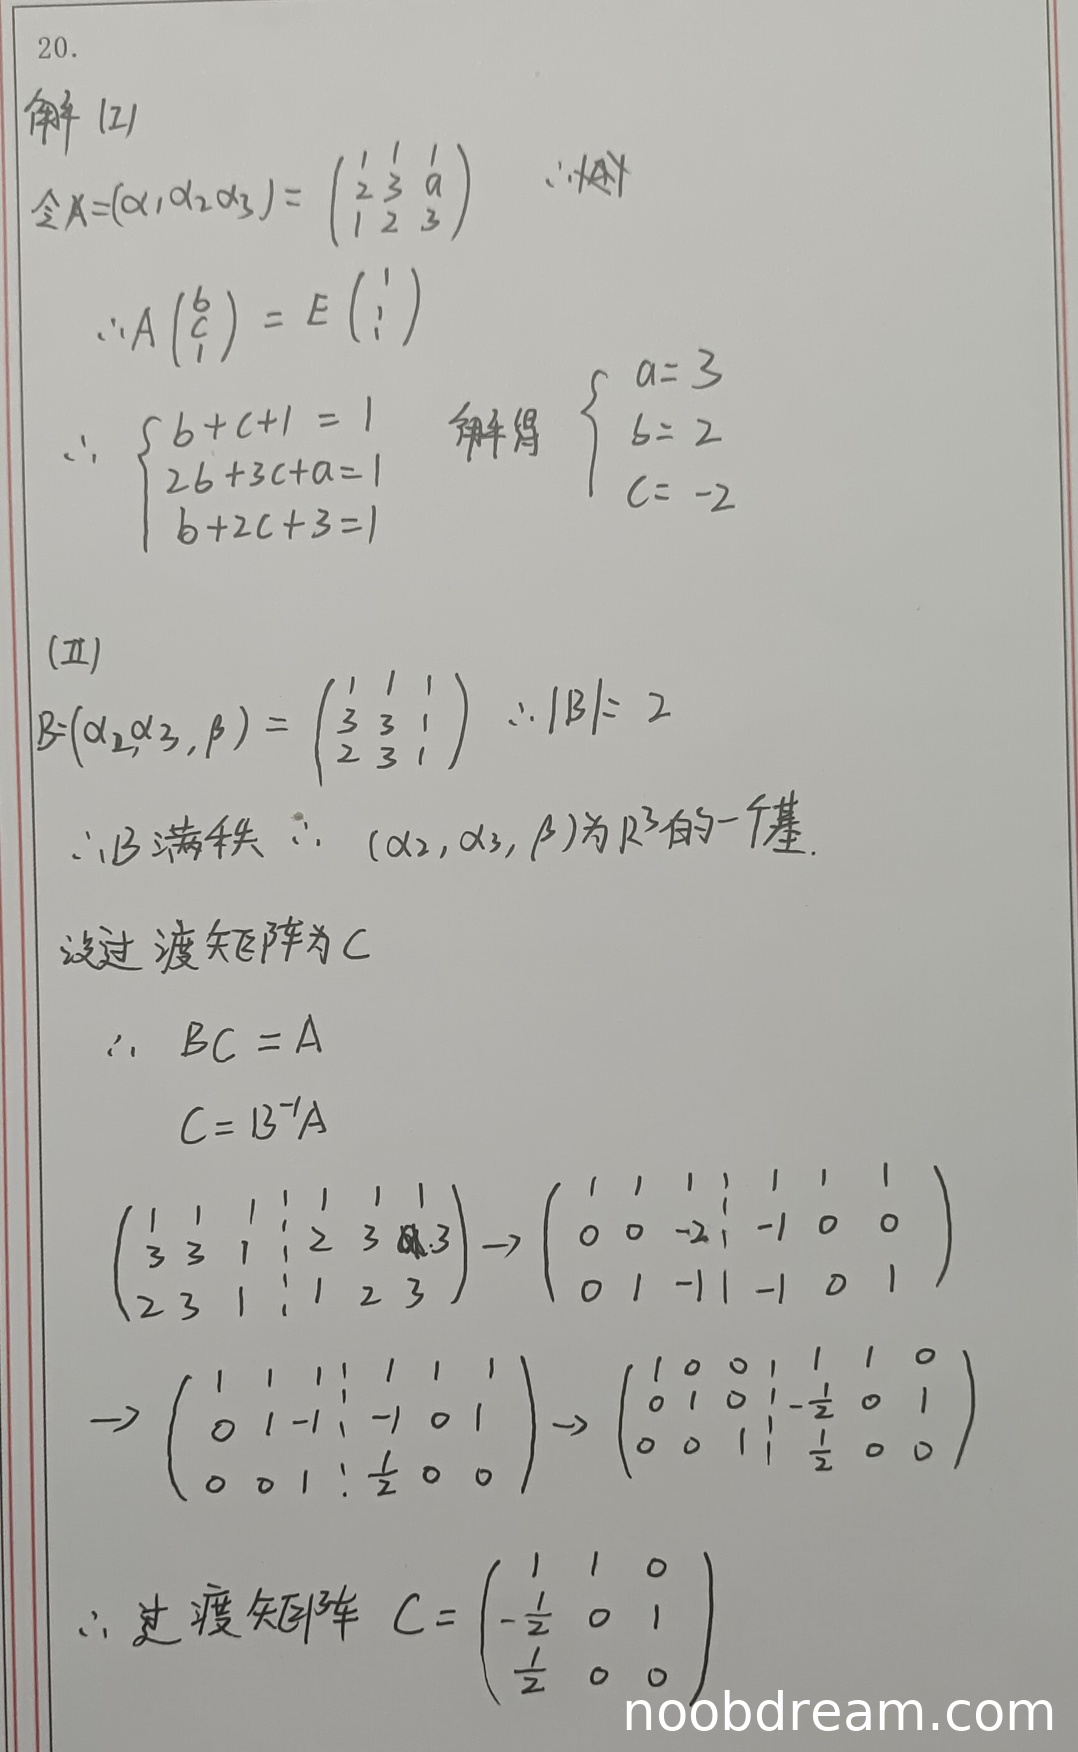 20.
解 (I)
令A=(α₁α₂α₃) = (1 1 1
2 3 a
1 2 3)
∴A (b
c
1) = E (1
1
1)
∴ { b+c+1 = 1
2b+3c+a=1
b+2c+3=1
解得 { a=3
b=2
c=-2
(II)
B=(α₂,α₃,β) = (1 1 1
3 3 1
2 3 1) ∴|B|= 2
∴B满秩 ∴ (α₂,α₃,β)为R³的一个基.
设过渡矩阵为C
∴ BC = A
C = B⁻¹A
(1 1 1 ¦ 1 1 1
3 3 1 ¦ 2 3 3
2 3 1 ¦ 1 2 3) → (1 1 1 ¦ 1 1 1
0 0 -2 ¦ -1 0 0
0 1 -1 | -1 0 1)
→ (1 1 1 ¦ 1 1 1
0 1 -1 ¦ -1 0 1
0 0 1 ¦ 1/2 0 0) → (1 0 0 ¦ 1 1 0
0 1 0 ¦ -1/2 0 1
0 0 1 ¦ 1/2 0 0)
∴ 过渡矩阵 C = (1 1 0
-1/2 0 1
1/2 0 0)
noobdream.com